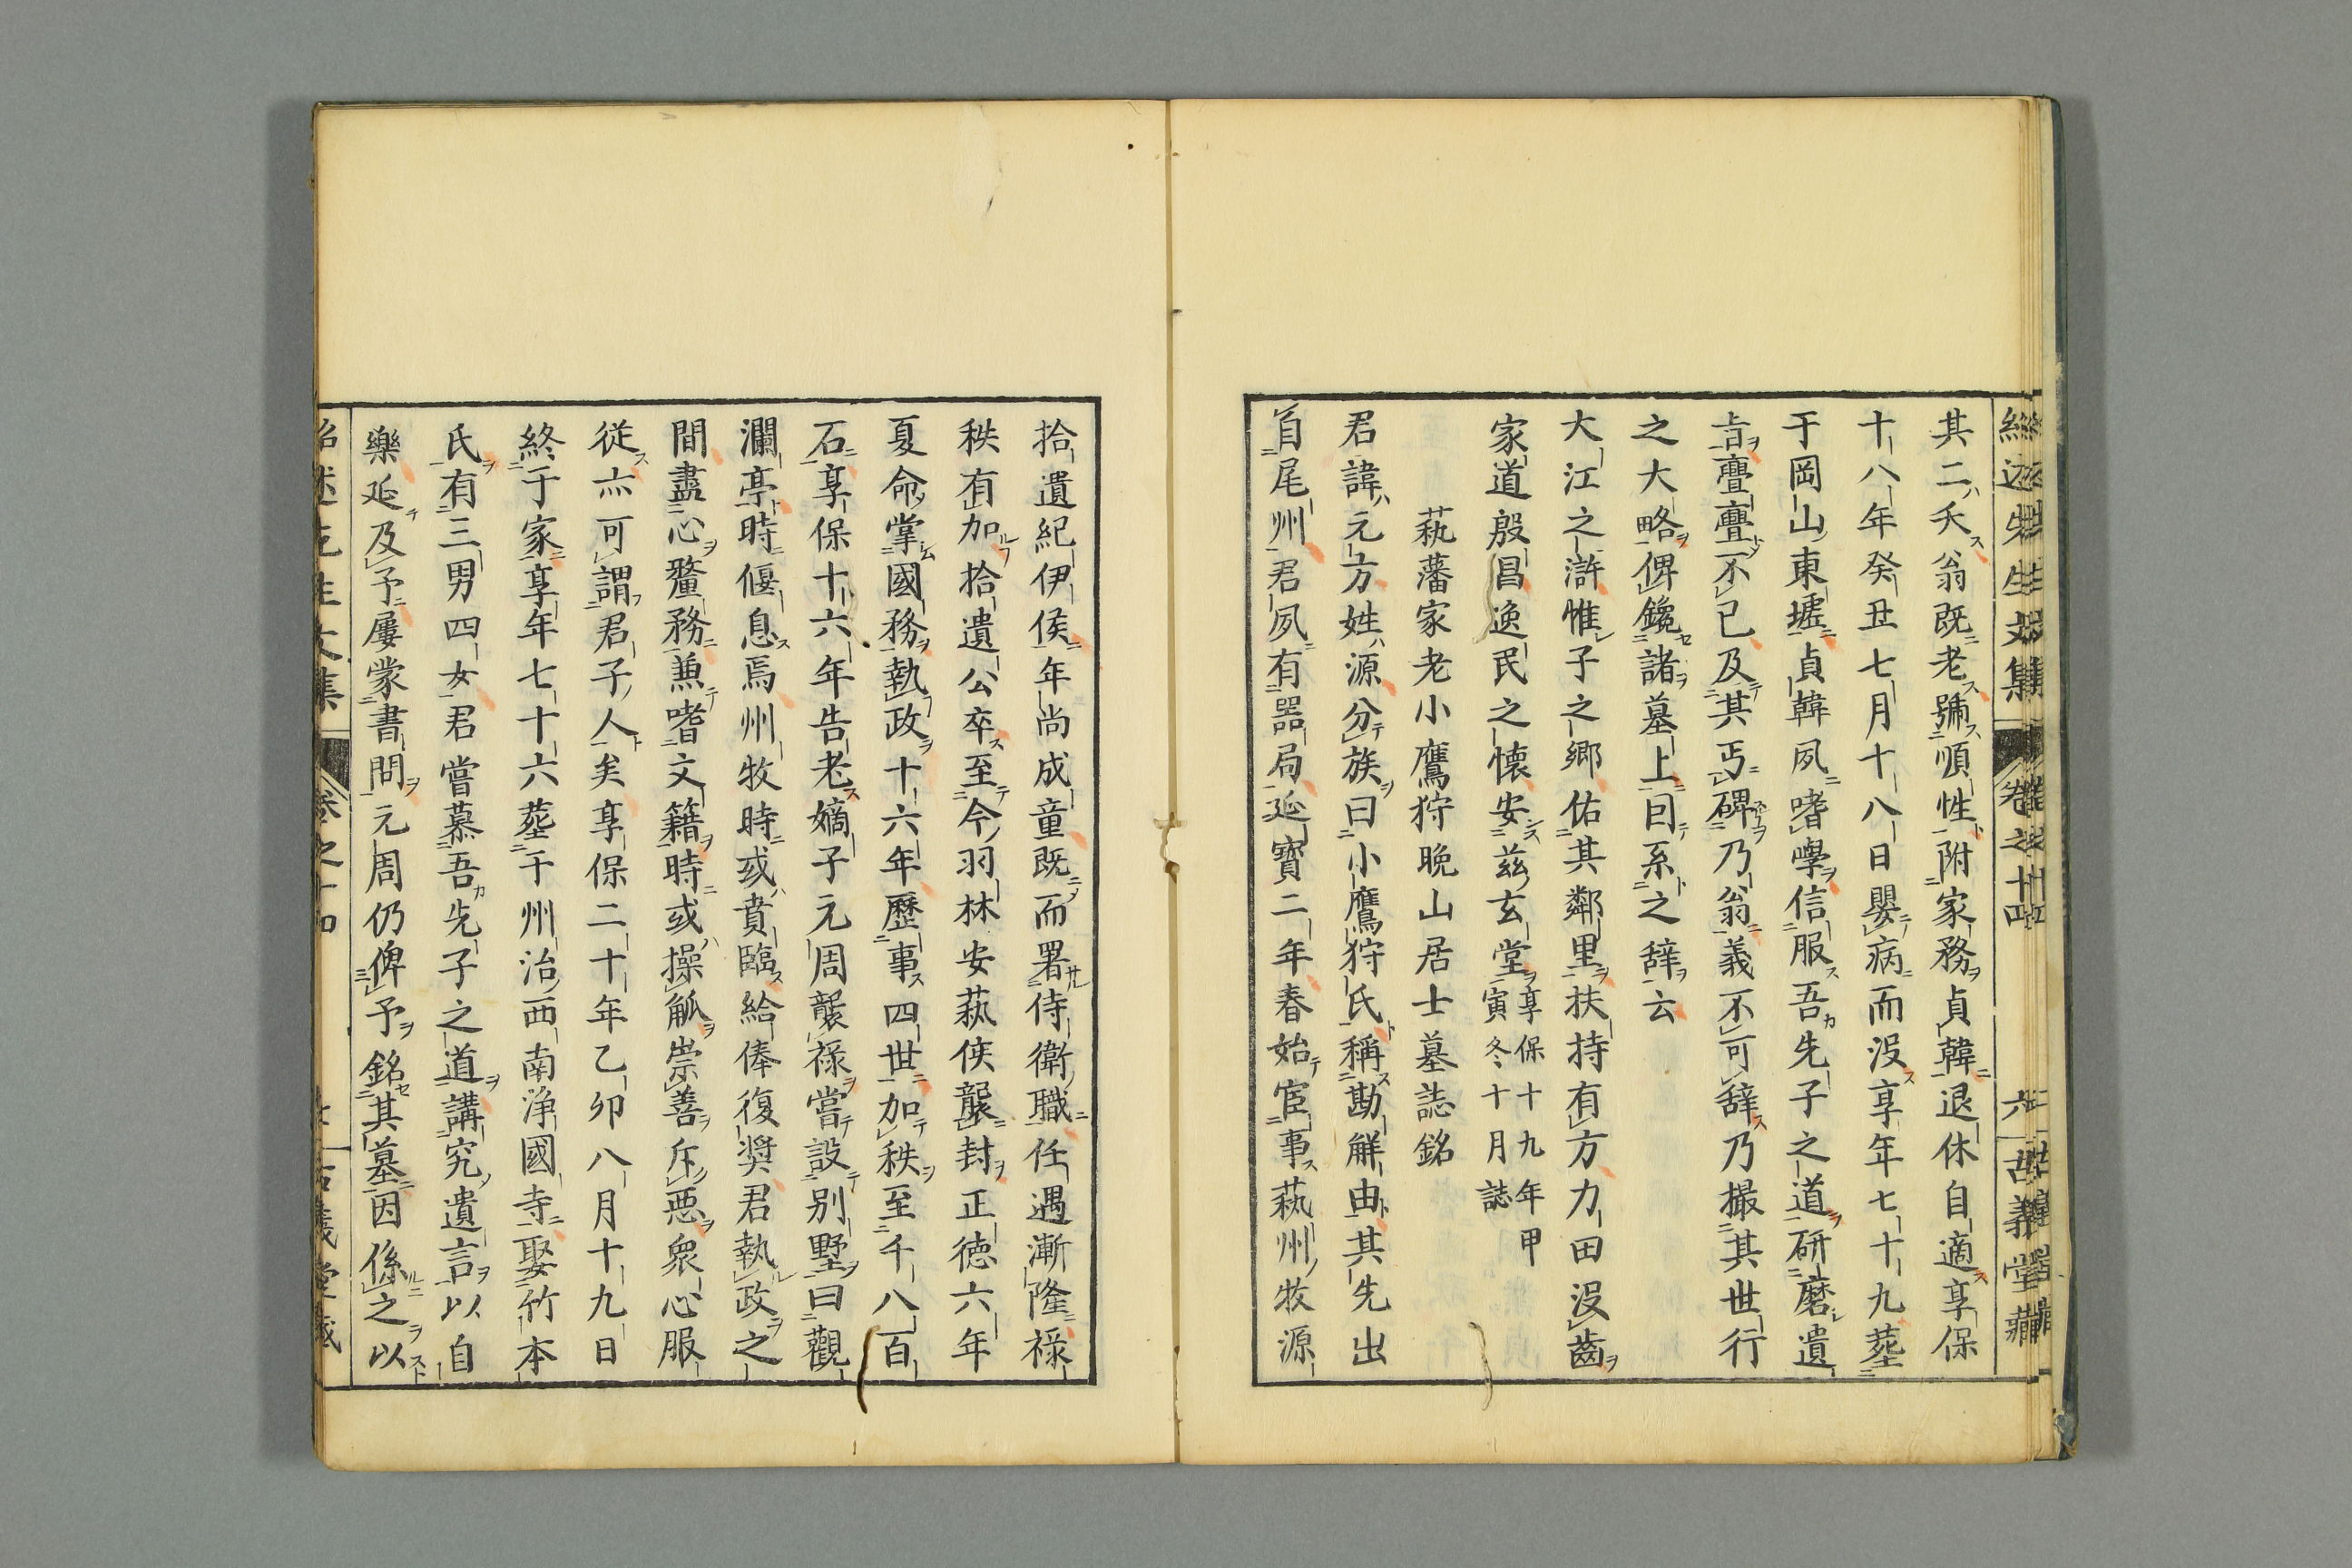 其二夭翁既老號順性附家務貞韓退休自適享保
十八年癸丑七月十八日嬰病而没享年七十九葬
于岡山東墟貞韓夙嗜學信服吾先子之道研磨遺
言亹亹不已及其丐碑乃翁義不可辭乃撮其世行
之大略俾鑱諸墓上因系之辭云
大江之滸惟子之郷佑其鄰里扶持有方力田没齒
家道殷昌逸民之懐安茲玄堂享保十九年甲
寅冬十月誌
萩藩家老小鷹狩晩山居士墓誌銘
君諱元方姓源分族曰小鷹狩氏稱勘解由其先出
自尾州君夙有器局延寶二年春始宦事萩州牧源
拾遺紀伊侯年尚成童既而署侍衛職任遇漸隆禄
秩有加拾遺公卒至今羽林安萩侯襲封正徳六年
夏命掌國務執政十六年歷事四世加秩至千八百
石享保十六年告老嫡子元周襲禄嘗設別墅曰觀
瀾亭時偃息焉州牧時或賁臨給俸復奬君執政之
間盡心釐務兼嗜文籍時或操觚崇善斥惡衆心服
從亦可謂君子人矣享保二十年乙卯八月十九日
終于家享年七十六葬于州治西南浄國寺娶竹本
氏有三男四女君嘗慕吾先子之道講究遺言以自
樂延及予屢蒙書問元周仍俾予銘其墓因係之以